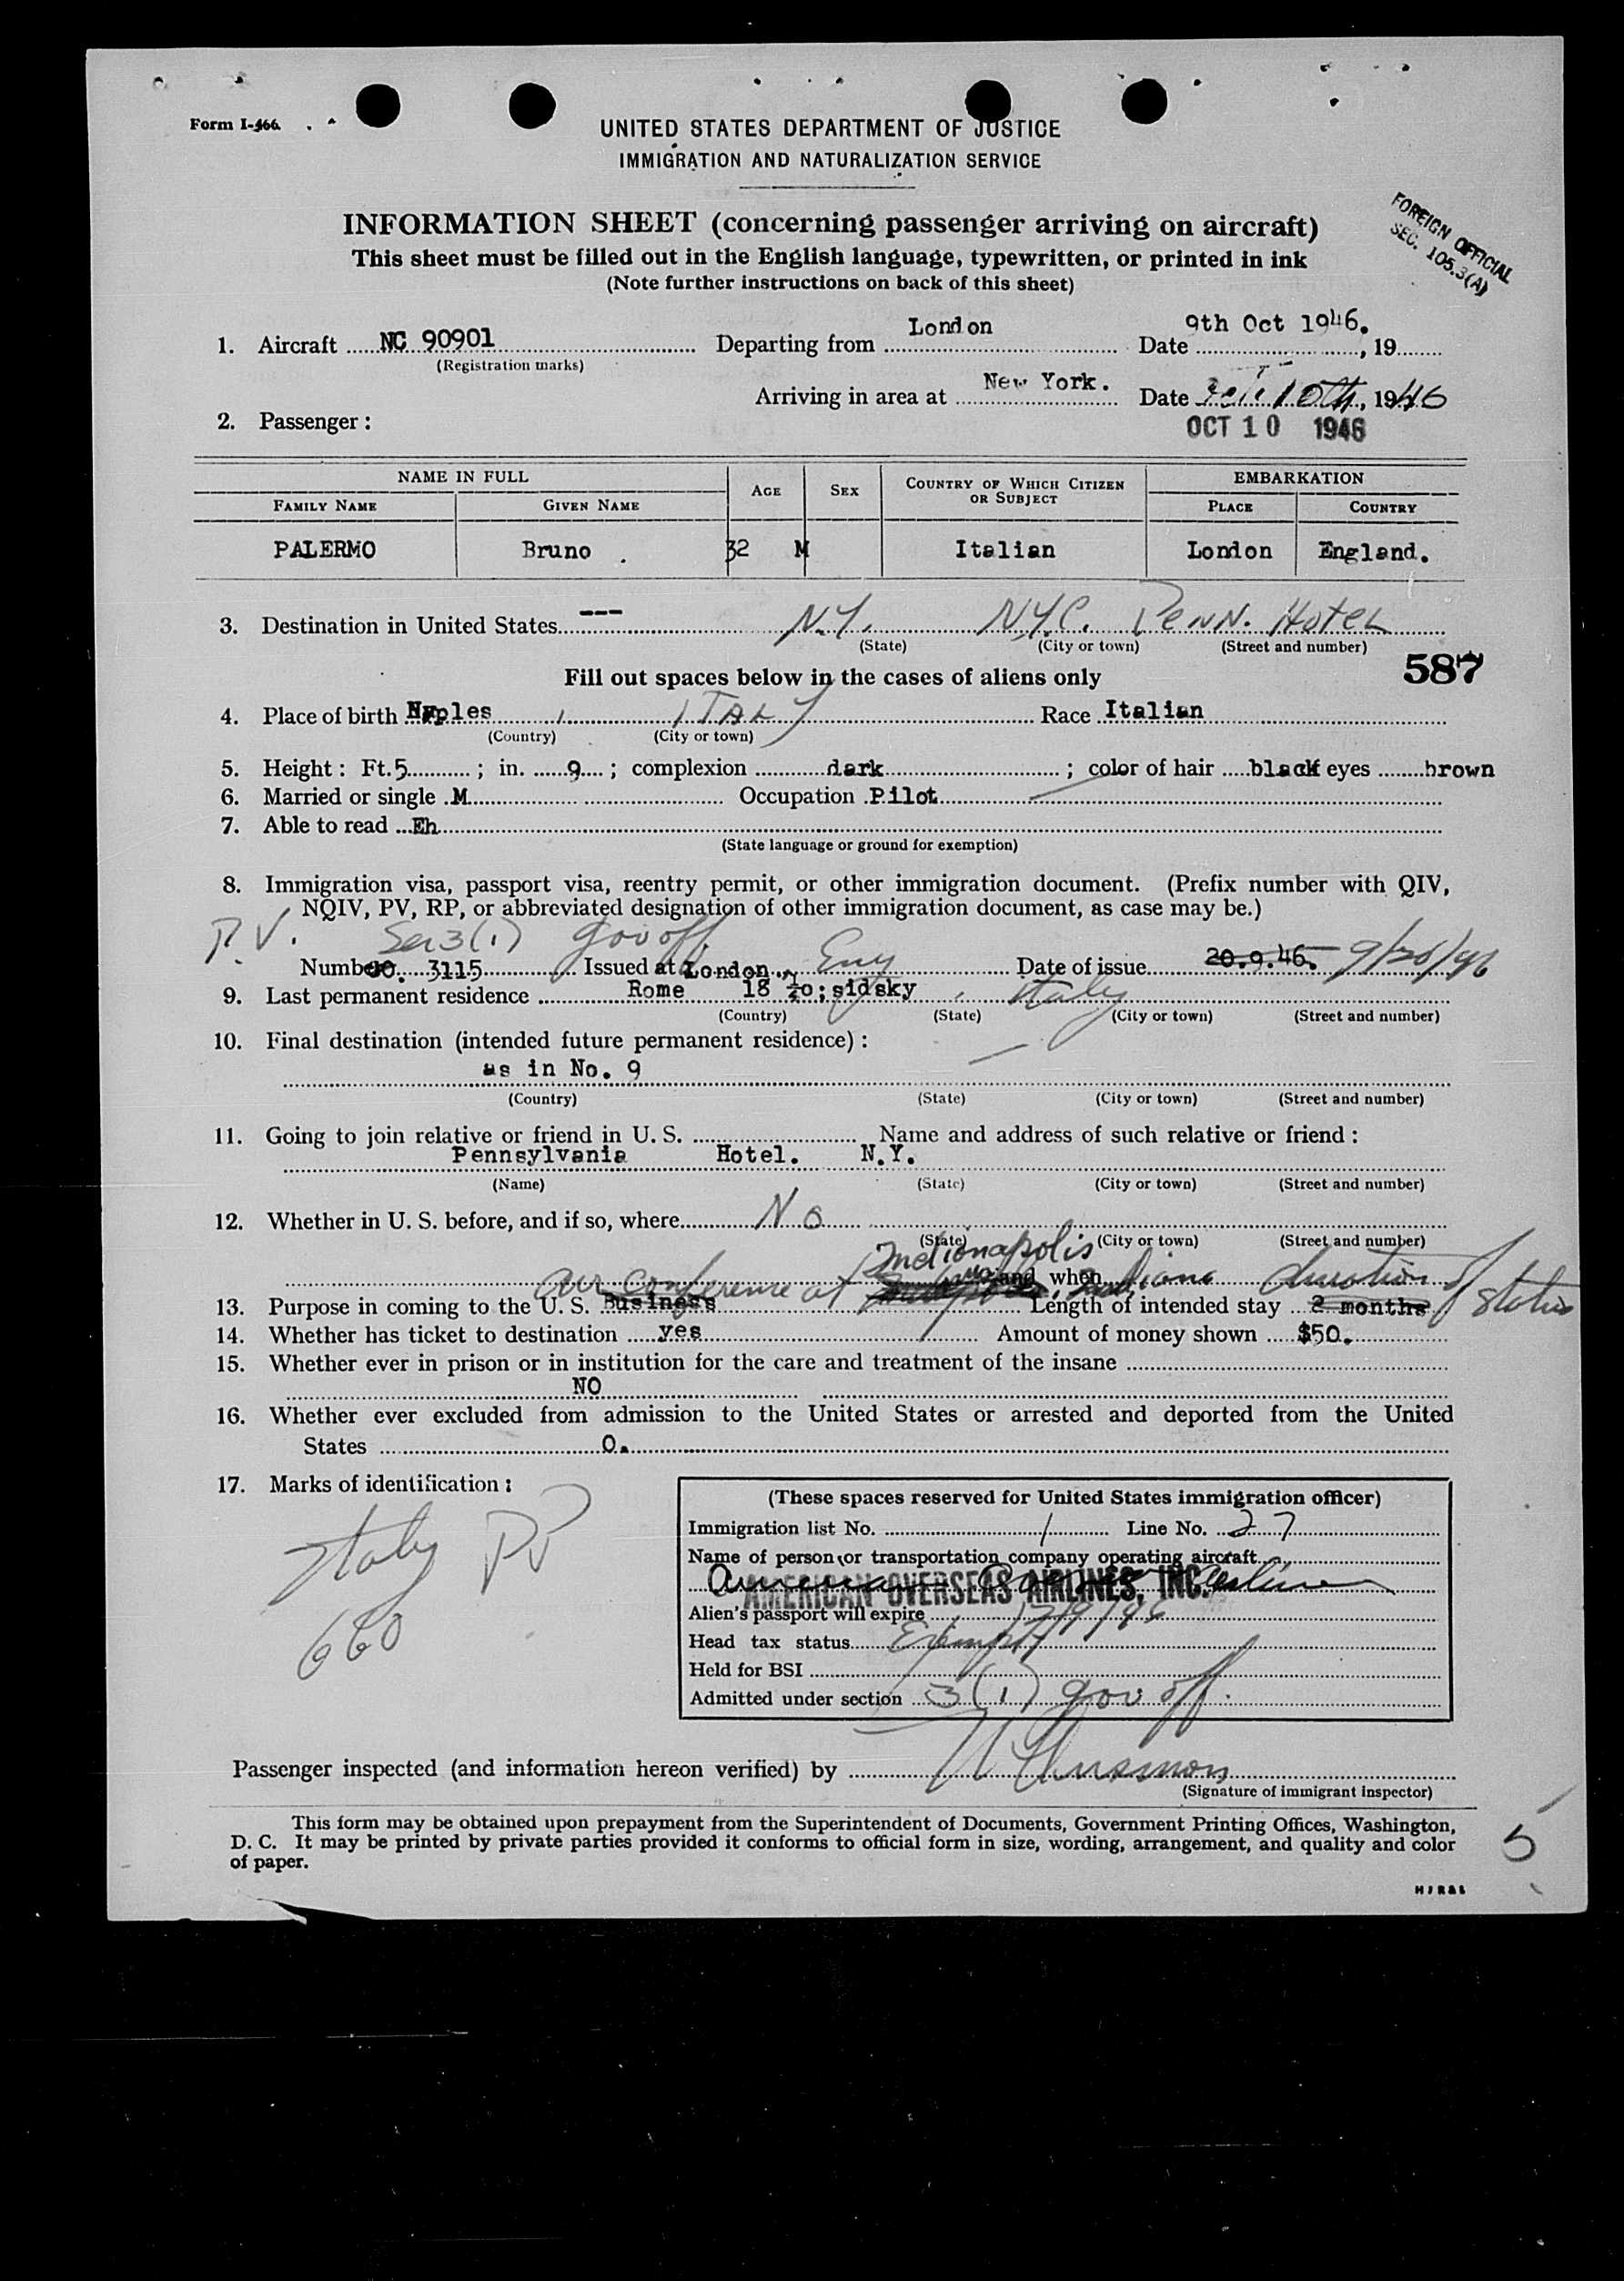 Form I-466
UNITED STATES DEPARTMENT OF JUSTICE
IMMIGRATION AND NATURALIZATION SERVICE
INFORMATION SHEET (concerning passenger arriving on aircraft)
FOREIGN OFFICIAL
SEC. 105.3(A)
This sheet must be filled out in the English language, typewritten, or printed in ink
(Note further instructions on back of this sheet)
1. Aircraft NC 90901 Departing from London Date 9th Oct 1946., 19
(Registration marks)
Arriving in area at New York. Date 10th, 1946
2. Passenger: OCT 10 1946
NAME IN FULL AGE SEX COUNTRY OF WHICH CITIZEN OR SUBJECT EMBARKATION
FAMILY NAME GIVEN NAME PLACE COUNTRY
PALERMO Bruno . 32 M Italian London England.
3. Destination in United States --- N.Y. N.Y.C. PENN. HOTEL
(State) (City or town) (Street and number)
Fill out spaces below in the cases of aliens only 587
4. Place of birth Naples, ITALY Race Italian
(Country) (City or town)
5. Height: Ft. 5 ; in. 9 ; complexion dark ; color of hair black eyes brown
6. Married or single M Occupation Pilot
7. Able to read Eh
(State language or ground for exemption)
8. Immigration visa, passport visa, reentry permit, or other immigration document. (Prefix number with QIV,
NQIV, PV, RP, or abbreviated designation of other immigration document, as case may be.)
P.V. Sec 3(1) gov off
Number 3115 Issued at London, Eng Date of issue 20.9.46. 9/20/46
9. Last permanent residence Rome 18 sidsky, Italy
(Country) (State) (City or town) (Street and number)
10. Final destination (intended future permanent residence):
as in No. 9
(Country) (State) (City or town) (Street and number)
11. Going to join relative or friend in U. S. Name and address of such relative or friend:
Pennsylvania Hotel. N.Y.
(Name) (State) (City or town) (Street and number)
12. Whether in U. S. before, and if so, where No
(State) (City or town) (Street and number)
Indionapolis
Air Conference at and when Indiana duration of status
13. Purpose in coming to the U. S. Business Length of intended stay 2 months
14. Whether has ticket to destination yes Amount of money shown $50.
15. Whether ever in prison or in institution for the care and treatment of the insane
NO
16. Whether ever excluded from admission to the United States or arrested and deported from the United
States 0.
17. Marks of identification:
Italy PP
660
(These spaces reserved for United States immigration officer)
Immigration list No. 1 Line No. 27
Name of person or transportation company operating aircraft
American Overseas Airlines
AMERICAN OVERSEAS AIRLINES, INC.
Alien's passport will expire
Head tax status Exempt
Held for BSI
Admitted under section 3(1) gov off.
Passenger inspected (and information hereon verified) by
(Signature of immigrant inspector)
This form may be obtained upon prepayment from the Superintendent of Documents, Government Printing Offices, Washington,
D. C. It may be printed by private parties provided it conforms to official form in size, wording, arrangement, and quality and color
of paper.
5